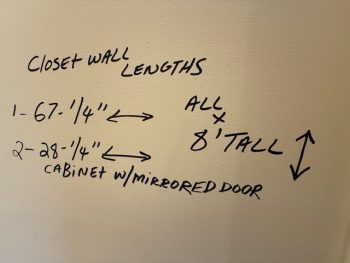 CLOSET WALL
LENGTHS
1- 67-1/4" ↔
2- 28-1/4" ↔
CABINET W/MIRRORED DOOR
ALL
x
8' TALL ↕